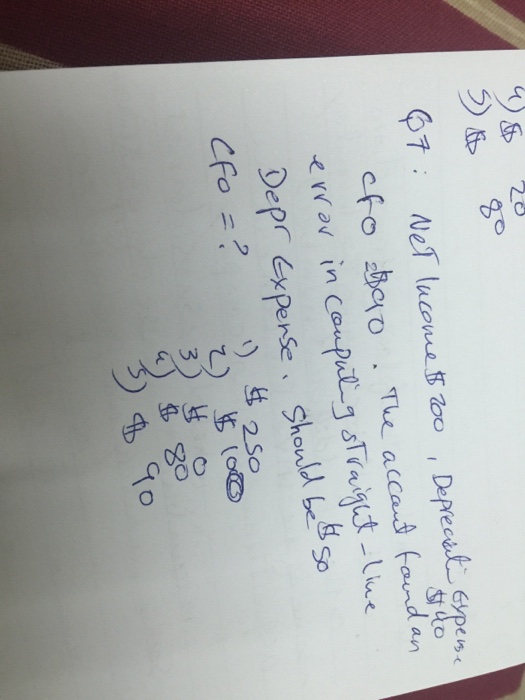 4) $ 20
5) $ 80
Q7: Net Income $200, Depreciati Expense $40
CFO = $90. The accant found an
error in computing straight-line
Depr Expense. Should be $50
CFO = ?
1) $ 250
2) $ 100
3) $ 0
4) $ 80
5) $ 90